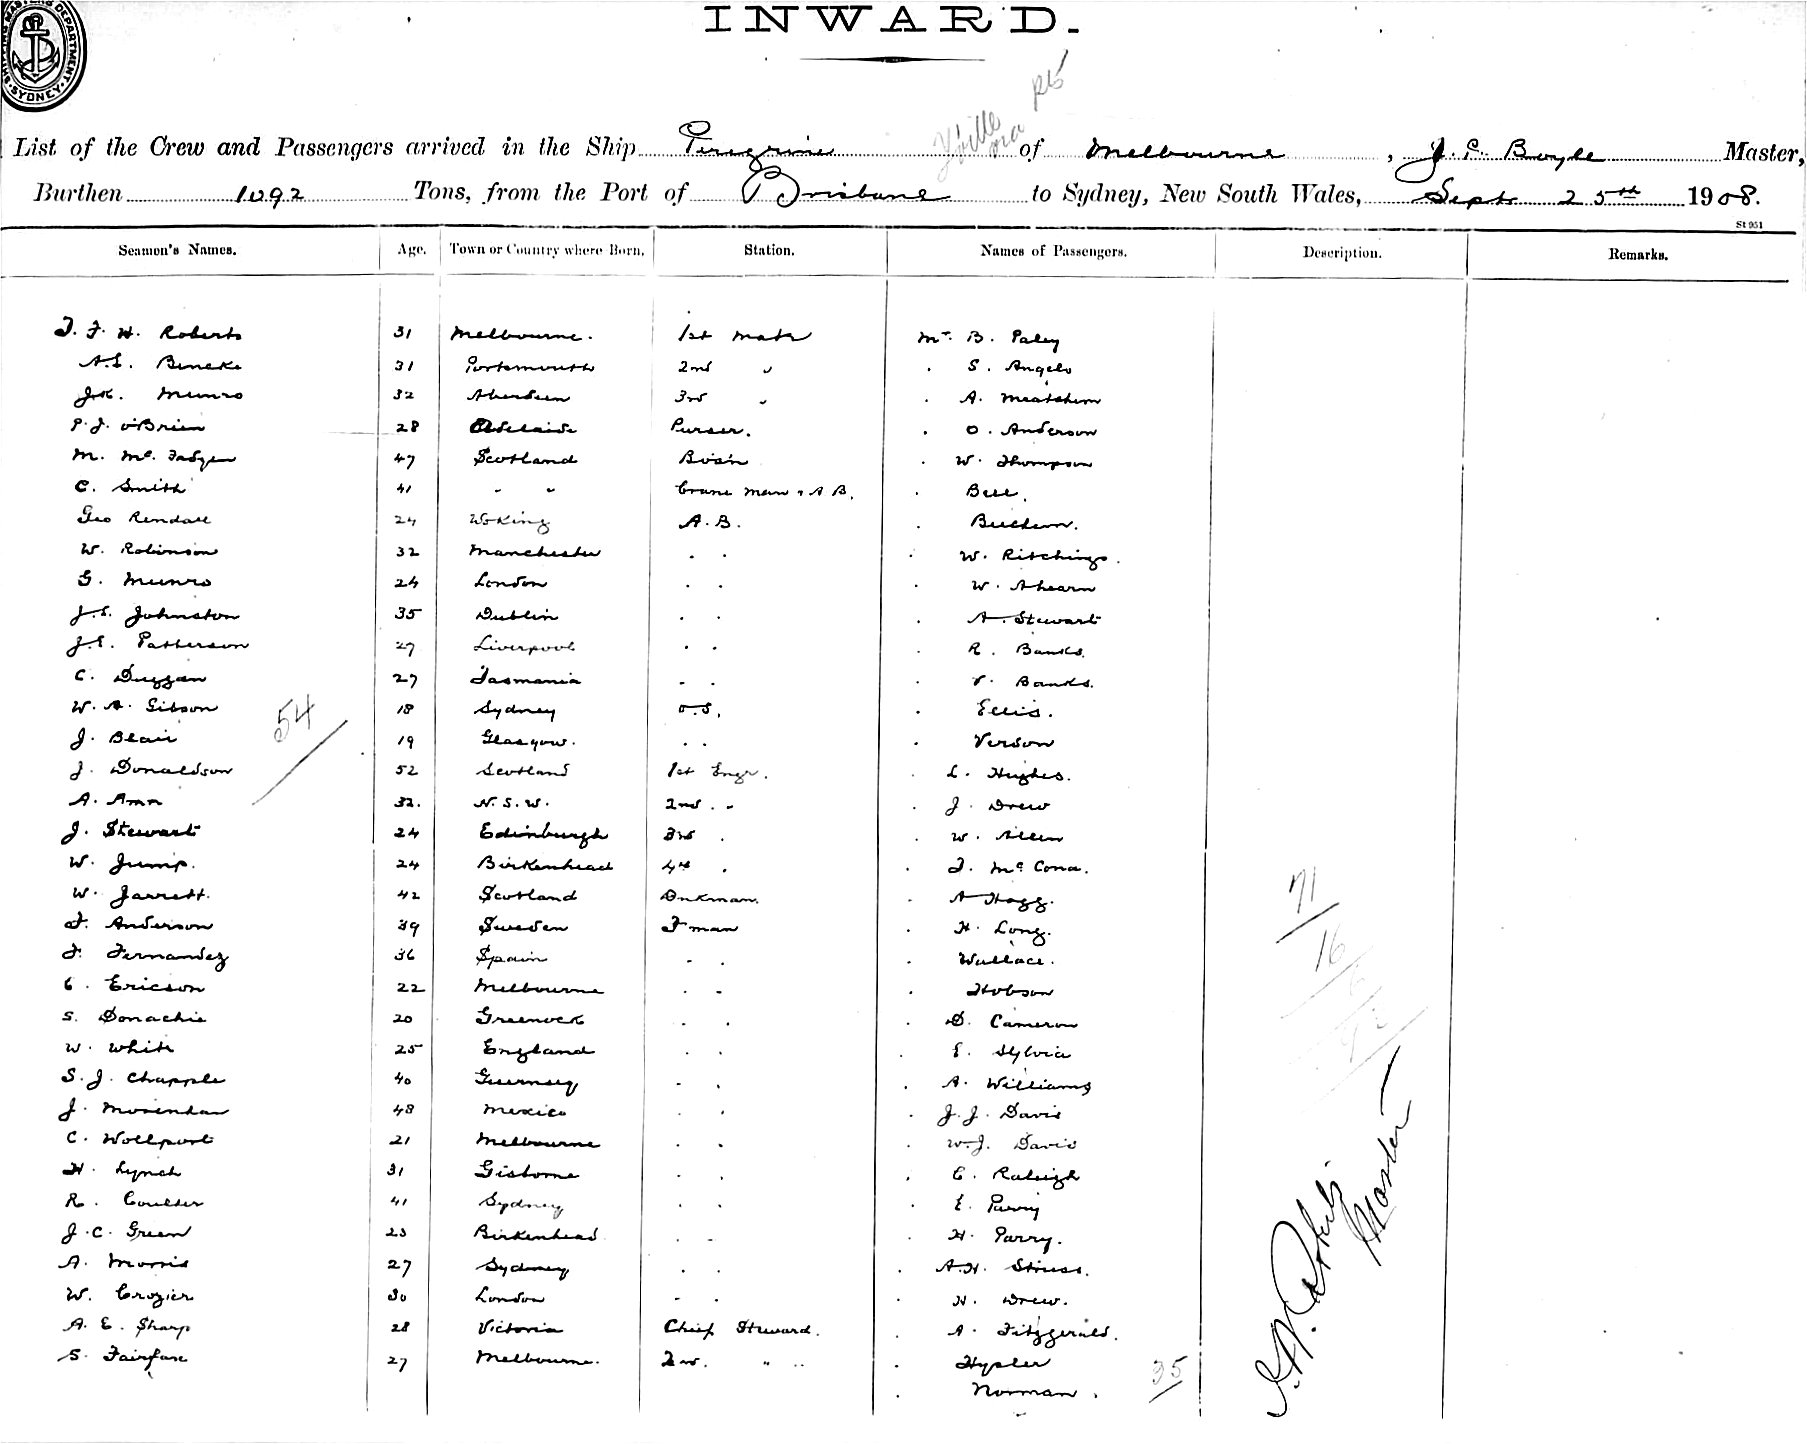 INWARD.
SHIPPING MASTERS DEPARTMENT SYDNEY
List of the Crew and Passengers arrived in the Ship Peregrine of Melbourne, J. C. Boyle Master,
Burthen 1092 Tons, from the Port of Brisbane to Sydney, New South Wales, Sept 25th 1908.
St 951
Seamen's Names. Age. Town or Country where Born. Station. Names of Passengers. Description. Remarks.
T. F. H. Roberts 31 Melbourne. 1st Mate Mr. B. Paley
A.E. Beneke 31 Portsmouth 2nd " . S. Angelo
J.K. Munro 32 Aberdeen 3rd " . A.
P. J. O'Brien 28 Adelaide Purser. . O. Anderson
M. Mc. Fadyen 47 Scotland Bos'n . W. Thompson
C. Smith 41 " " Crane Man & A B. . Bell.
Geo Rendall 24 Woking A.B. .
W. Robinson 32 Manchester . . . W. Ritchings.
G. Munro 24 London . . . W. Ahearn
J.S. Johnston 35 Dublin . . . A. Stewart
J.E. Patterson 27 Liverpool . . . R. Banks.
C. Duggan 27 Tasmania . . . V. Banks.
W. A. Gibson 18 Sydney O.S. . Ellis.
J. Blair 19 Glasgow. . . . Verdon
54
J. Donaldson 52 Scotland 1st Engr. . L. Hughes.
A. Ann 32. N.S.W. 2nd . " . J. Drew
J. Stewart 24 Edinburgh 3rd . . W. Allen
W. Jump. 24 Birkenhead 4th . . T. Mc Cona.
W. Jarrett. 42 Scotland Dnkman. . A Hogg.
F. Anderson 39 Sweden F man . H. Long.
F. Fernandez 36 Spain . . . Wallace.
C. Ericson 22 Melbourne . . . Hobson
S. Donachie 20 Greenock . . . D. Cameron
W. White 25 England . . . E. Sylvia
S. J. Chapple 40 Guernsey . . . A. Williams
J. 48 Mexico . . . J. J. Davis
C. Wollport 21 Melbourne . . . W.J. Davis
H. Lynch 31 Gisborne . . . C. Raleigh
R. Coulter 41 Sydney . . . E. Parry
J.C. Green 23 Birkenhead . . . H. Parry.
A. Morris 27 Sydney . . . A.H. Struss.
W. Crozier 30 London . . . H. Drew.
A. E. Sharp 28 Victoria Chief Steward. . A. Fitzgerald.
S. Fairfax 27 Melbourne. 2nd. " " .
. Norman.
35
71
16
Master